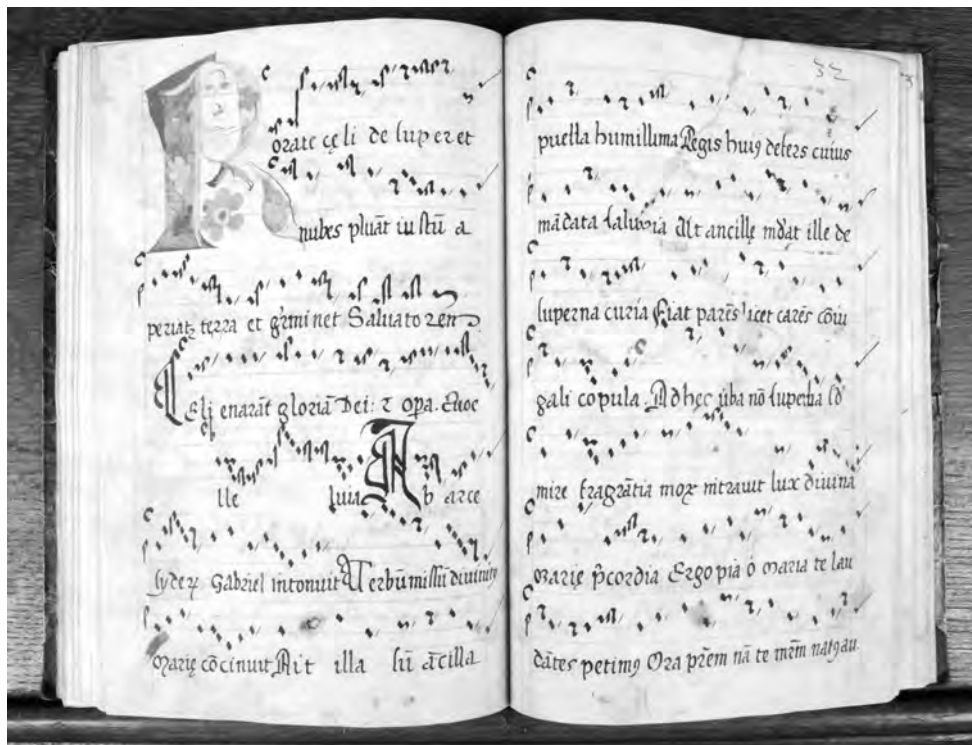 Rorate cęli de super et
nubes pluāt iustū a
periat terra et germinet Saluatorem
Celi enarāt gloriā Dei: z opa. Euoe
lle luia Ab arce
syderꝝ Gabriel intonuit Verbū missū diuinitꝰ
Marię cōcinuit Ait illa sū ācilla
32
puella humillima Regis huiꝰ defers cuius
mādata Alt ancillę mdat ille de
superna curia Fiat parēs licet carēs cōiu
gali copula. Adhęc ūba nō superba sꝫ
mire fragrātia mox intrauit lux diuina
Marię p̄cordia Ergo pia ó Maria te lau
dātes petimꝰ Ora prēm nā te mrēm natꝰ au